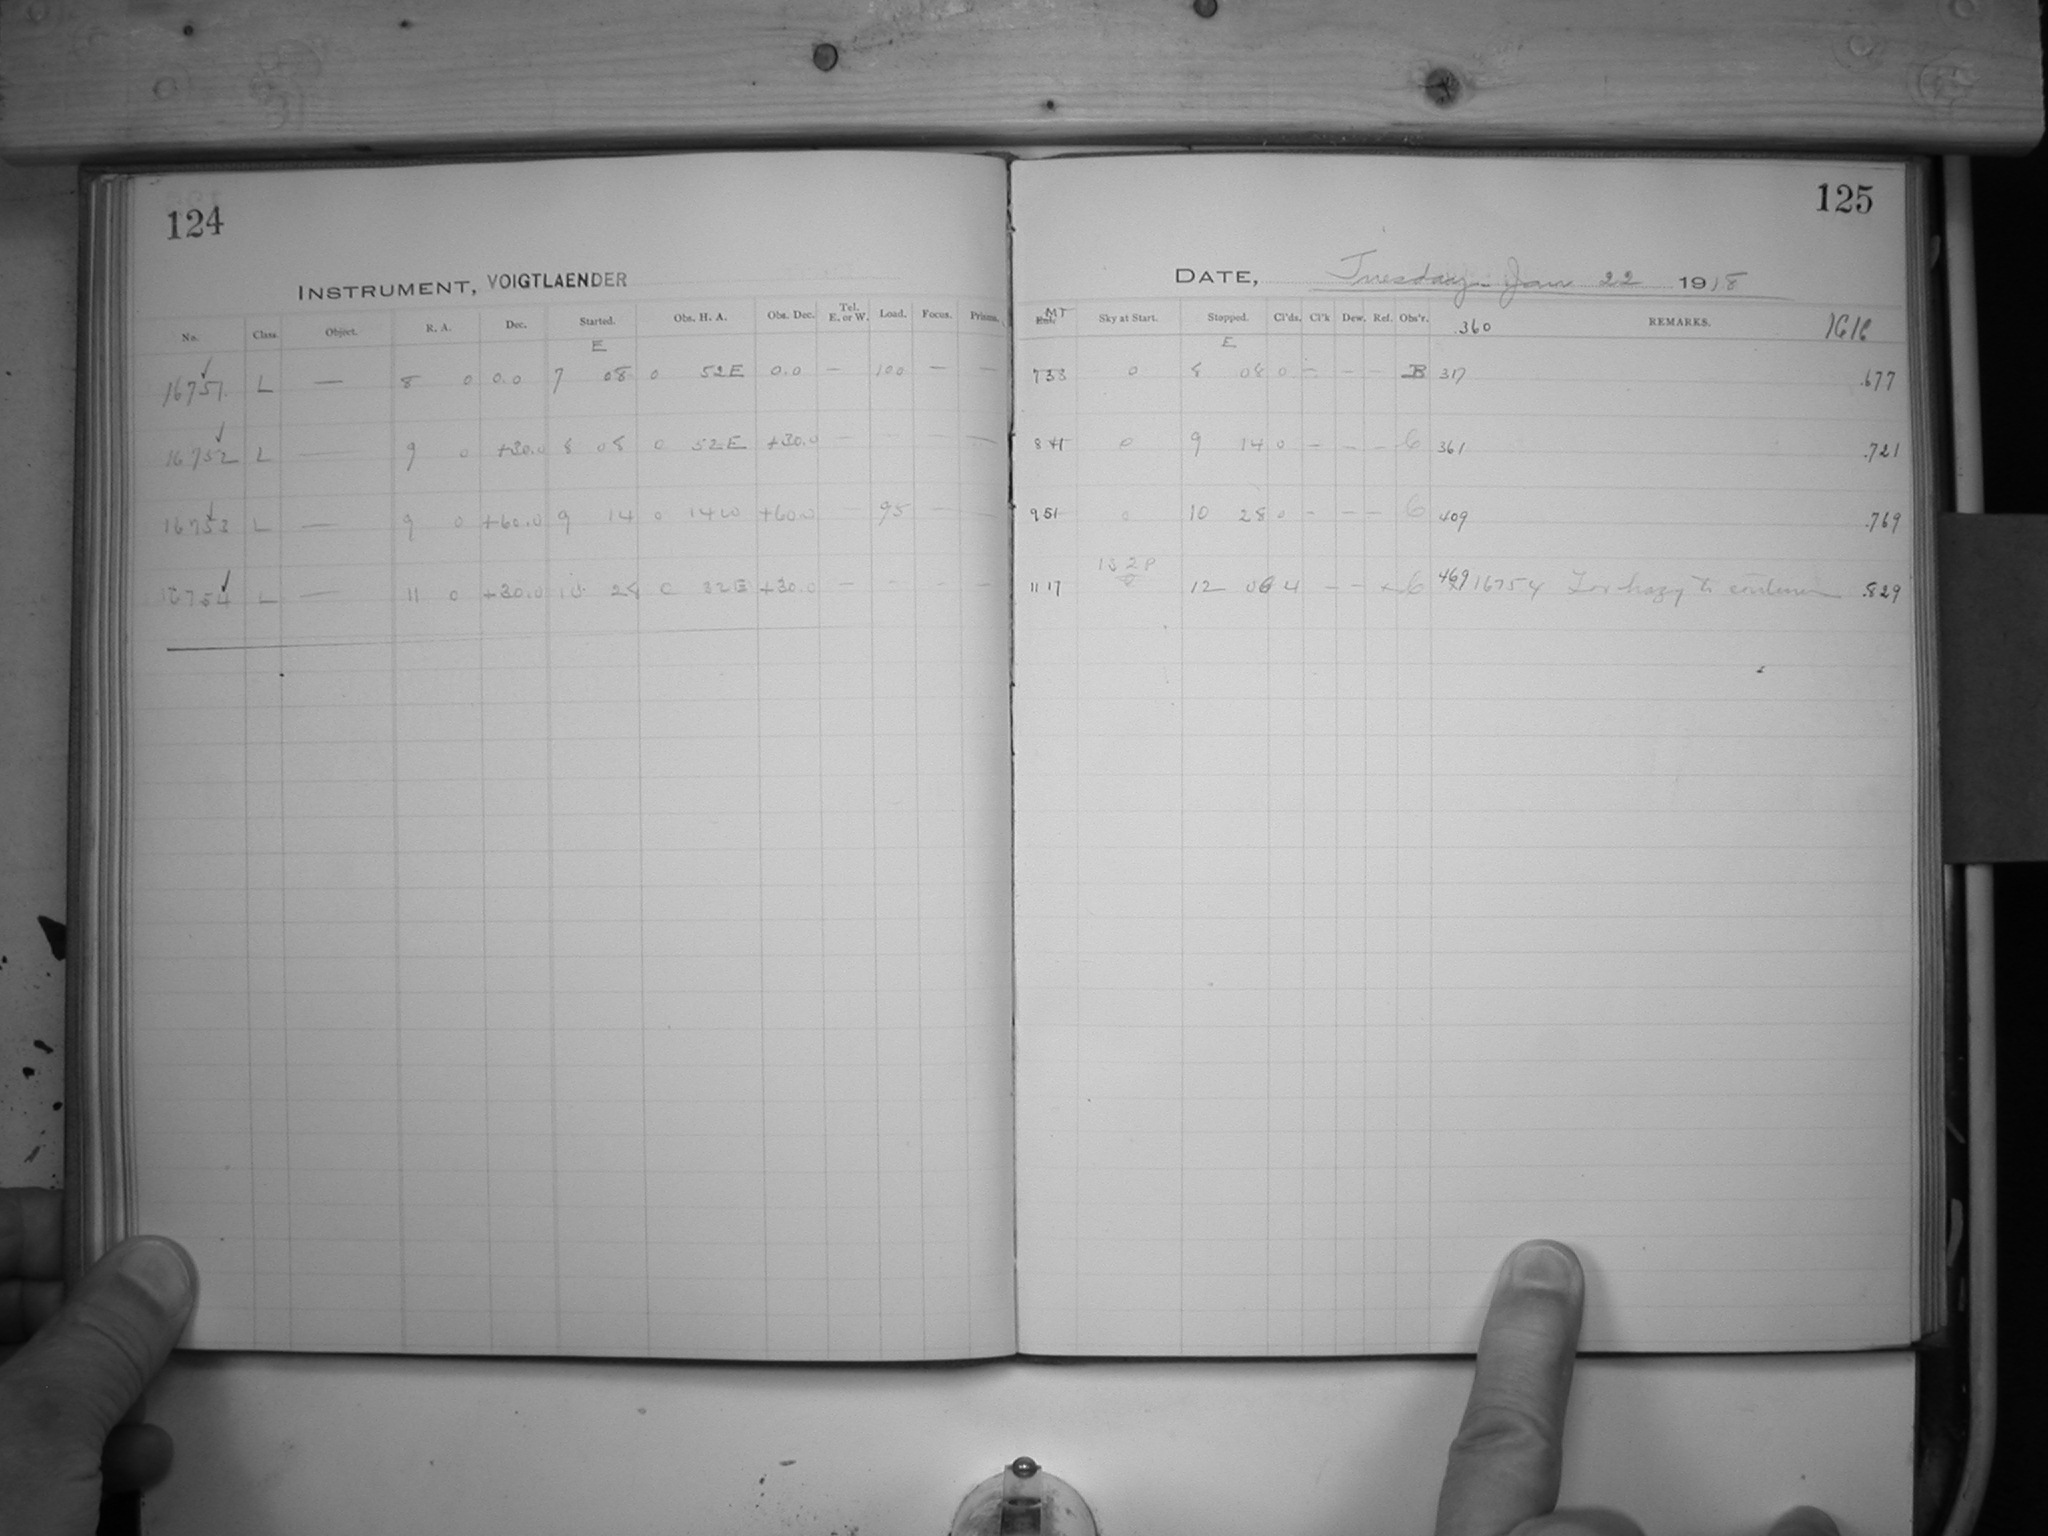 124
INSTRUMENT, VOIGTLAENDER
No. Class. Object. R. A. Dec. Started. Obs. H. A. Obs. Dec. Tel. E. or W. Load. Focus. Prisms.
E
16751 L — 8 0 0.0 7 08 0 52E 0.0 — 100 — —
16752 L — 9 0 +30.0 8 08 0 52E +30.0 — — — —
16753 L — 9 0 +60.0 9 14 0 14W +60.0 — 95 — —
16754 L — 11 0 +30.0 10 28 0 32E +30.0 — — — —
125
DATE, Tuesday Jan 22 1918
MT Sky at Start. Stopped. Cl'ds. Cl'k Dew. Ref. Obs'r. .360 REMARKS.
E
733 0 8 08 0 — — — B 317 .677
841 0 9 14 0 — — — 6 361 .721
951 0 10 28 0 — — — 6 409 .769
11 17 12 06 4 — — 6 469 16754 Too hazy to continue .829